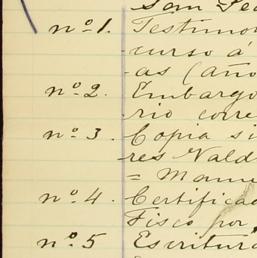 San Fe
nº 1. Testimon
curso á
as (año
nº 2. Embargo
rio corre
nº 3. Copia si
res Vald
= Manu
nº 4. Certifica
Fisco por
nº 5 Escritura